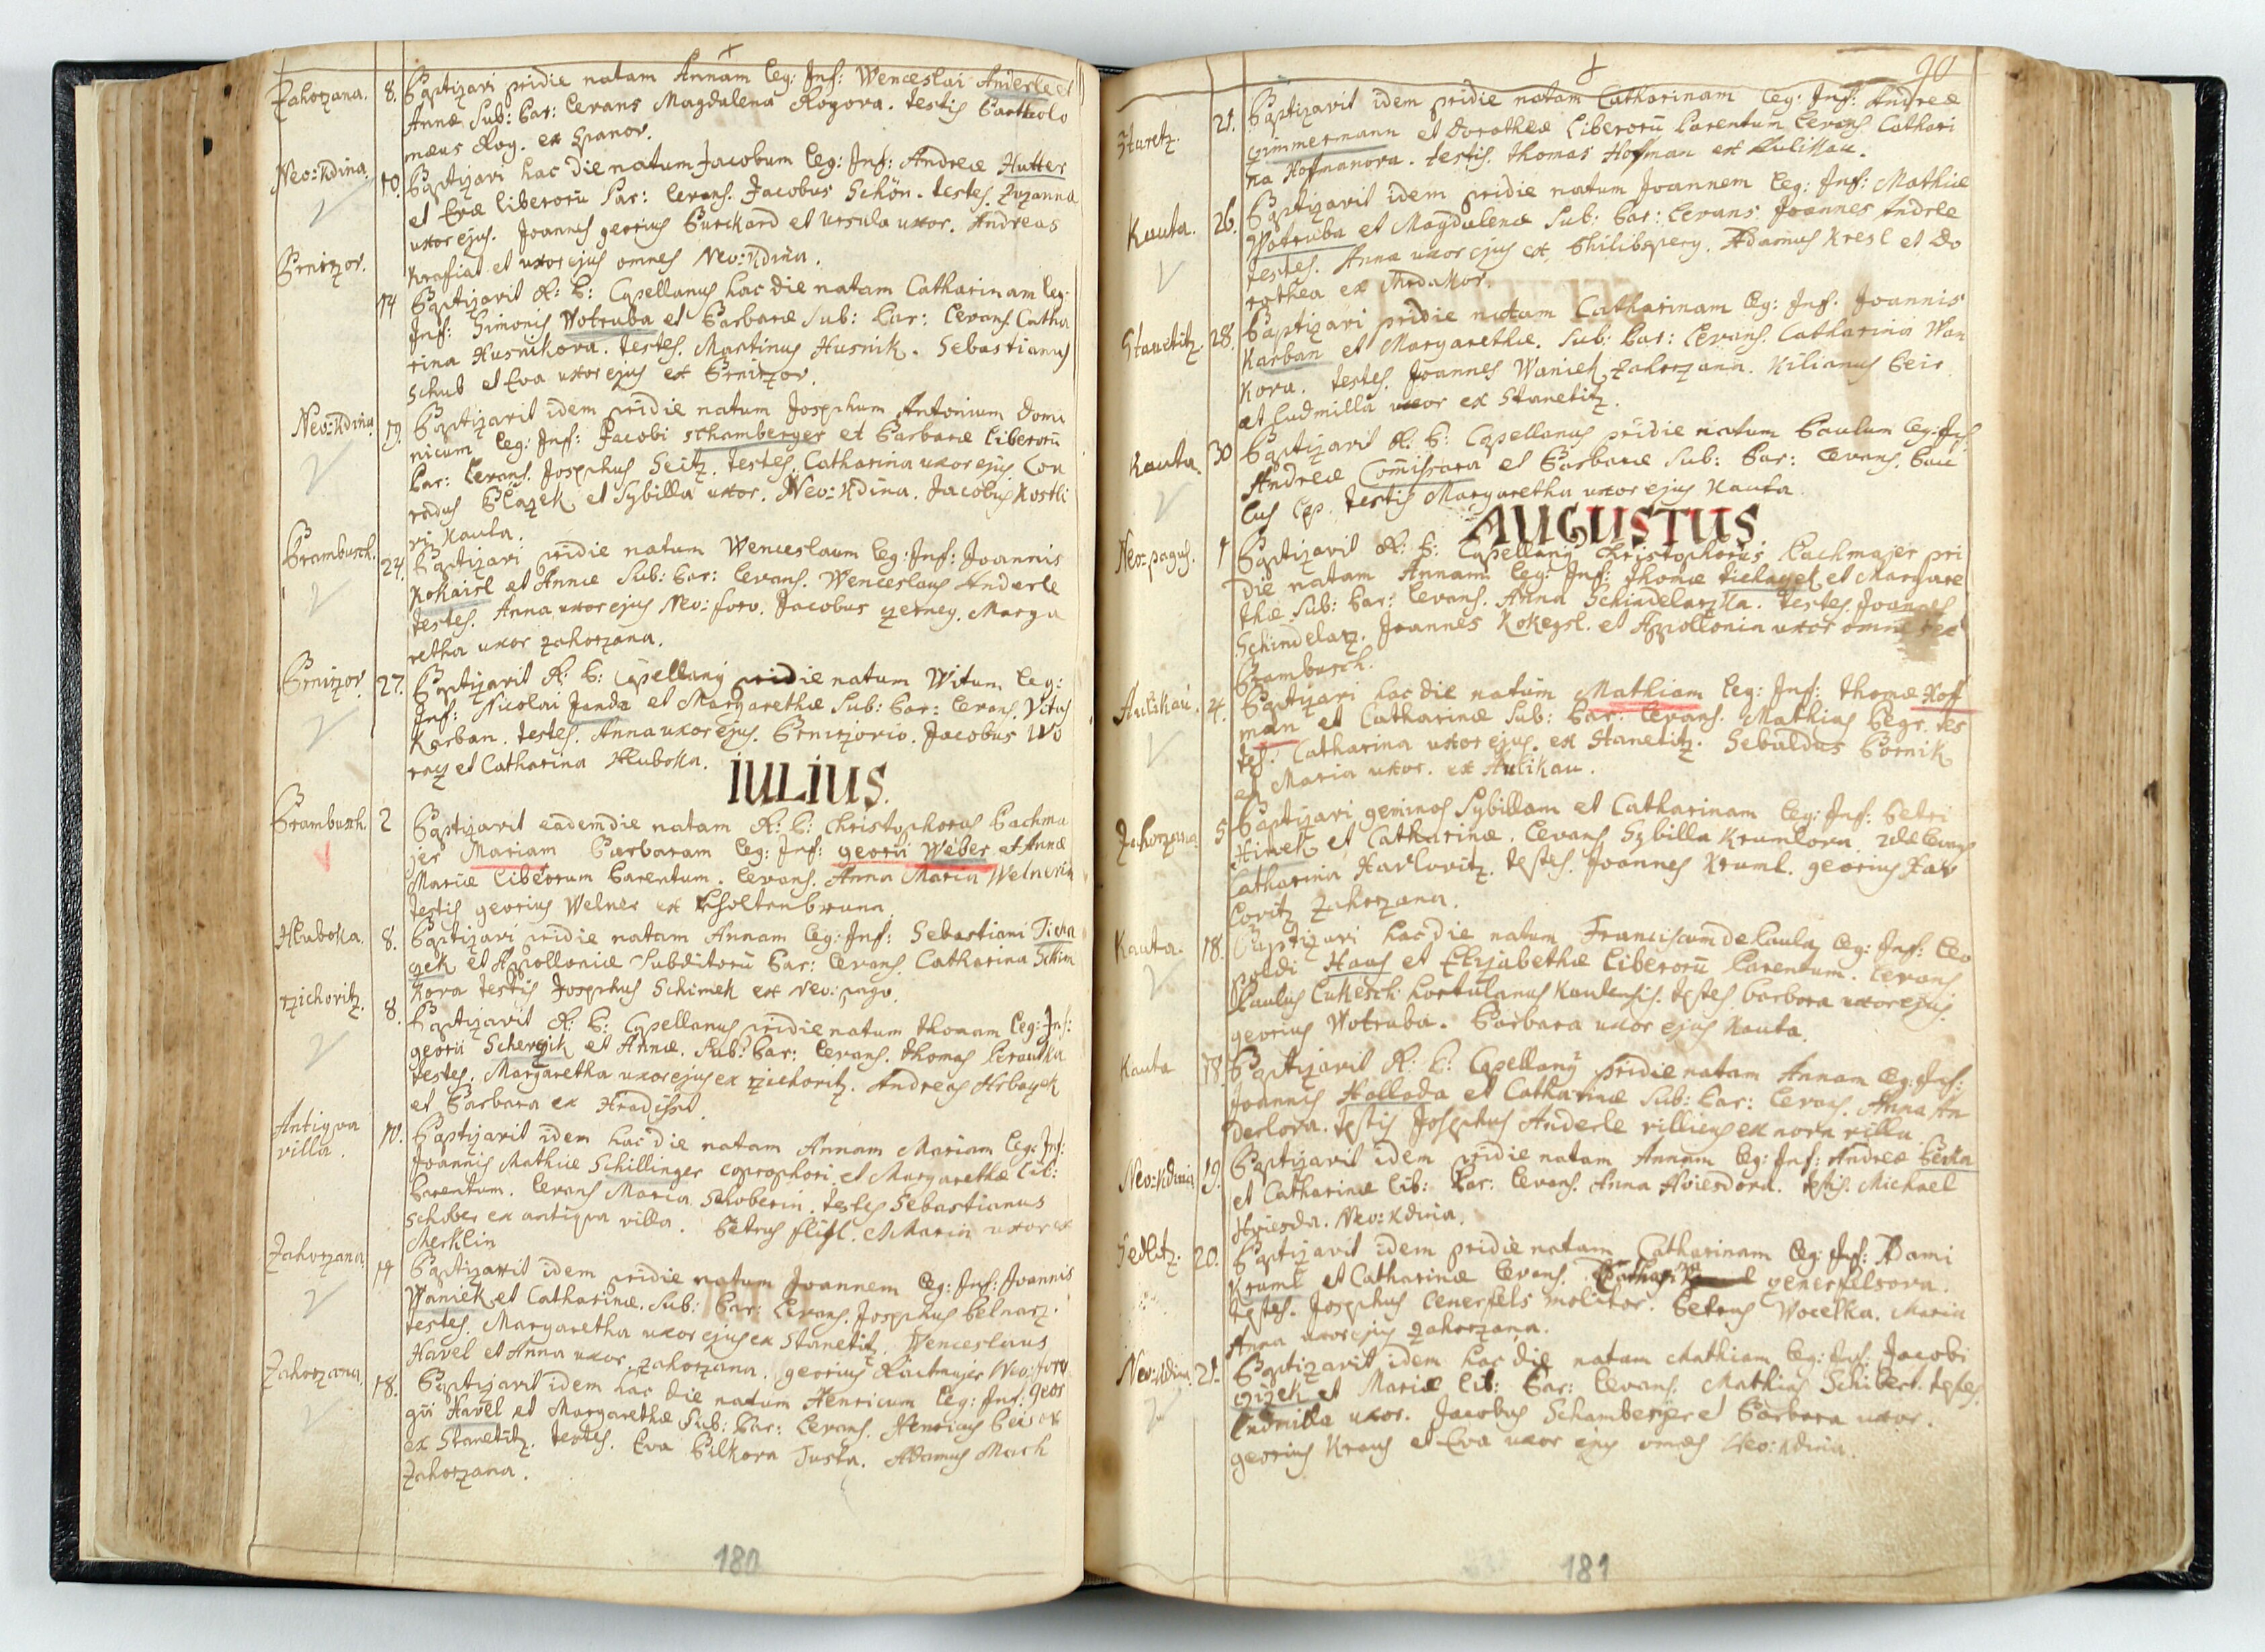 Zahorzana. 8. Baptizavi pridie natam Annam leg: Inf: Wenceslai Anderle et
Annæ Sub: Par: levans Magdalena Rogova. testis Bartholo
mæus Rog. ex Spanov.
Neo:Kdina. 10. Baptizavi hac die natum Jacobum leg: Inf: Andreæ Hutter
et Evæ liberorū Par: levans. Jacobus Schön. testes. Zuzanna
uxor ejus. Joannes georius Burckard et Ursula uxor. Andreas
Kraffiat et uxor ejus omnes Neo:Kdina.
Brnirzov. 14 Baptizavit R: P: Capellanus hac die natam Catharinam leg:
Inf: Simonis Wotruba et Barbaræ Sub: Par: levans. Catha
rina Husnikova. testes. Martinus Husnik. Sebastianus
Schub et Eva uxor ejus ex Brnirzov.
Neo:Kdina 19. Baptizavit idem pridie natum Josephum Antonium Domi
nicum leg: Inf: Jacobi Schamberger et Barbaræ liberorū
Par: levans. Josephus Seitz. testes. Catharina uxor ejus. Con
radus Blazek et Sybilla uxor. Neo:Kdina. Jacobus Kostli
vi Kauta.
Brambusch. 24. Baptizavi pridie natum Wenceslaum leg: Inf: Joannis
Kokaisl et Annæ Sub: Par: levans. Wenceslaus Anderle
testes. Anna uxor ejus Neo: foro. Jacobus zerney. Marga
retha uxor zahorzana.
Brnirzov 27. Baptizavit R: P: Capellanq pridie natum Witum leg:
Inf: Nicolai Janda et Margarethæ Sub: Par: levans. Vitus
Karban. testes. Anna uxor ejus. Brnirzovio. Jacobus Wo
racz et Catharina Hluboka.
IULIUS.
Brambusch 2 Baptizavit eadem die natam R: P: Christophorus Bachma
jer Mariam Barbaram leg: Inf: georii Weber et Annæ
Mariæ liberorum Parentum. levans. Anna Maria Welnerin
testis georius Welner ex Choltenbrunn
Hluboka. 8. Baptizavi pridie natam Annam leg: Inf: Sebastiani Ticha
czek et Apolloniæ Subditorū Par: levans. Catharina Schim
kova testis Josephus Schimek ex Neo: pago.
rzichovitz. 8. Baptizavit R: P: Capellanus pridie natum thomam leg: Inf:
georii Schevczik et Annæ. Sub: Par: levans. thomas Kraulka
testes. Margaretha uxor ejus ex rzichovitz. Andreas Hrbazek
et Barbara ex Hradisst.
Antiqva villa. 10. Baptizavit idem hac die natam Annam Mariam leg: Inf:
Joannis Mathiæ Schillinger coprophori et Margarethæ Lib:
Parentum. levans Maria Schoberin. testes Sebastianus
Schober ex antiqva villa. Petrus flisl. et Maria uxor ex
Merklin
Zahorzana 14 Baptizavit idem pridie natum Joannem leg: Inf: Joannis
Waniek et Catharinæ. Sub: Par: levans. Josephus Belnarz.
testes. Margaretha uxor ejus ex Stanetitz. Wenceslaus
Havel et Anna uxor. zahorzana. georius Raitmajer Neo: foro
Zahorzana. 18. Baptizavit idem hac die natum Henricum leg: Inf: geor
gii Havel et Margarethæ Sub: Par: levans. Henricus Beis ex
ex Stanetitz. testes. Eva Bilkova Justa. Adamus Mach
Zahorzana.
180
90
Huretz. 21. Baptizavit idem pridie natam Catharinam leg: Inf: Andreæ
Cimmermann et Dorotheæ liberorū Parentum levans. Cathari
na Hoffmanova. testis. thomas Hoffman ex Aulikau.
Kauta. 26. Baptizavit idem pridie natum Joannem leg: Inf: Mathiæ
Wotruba et Magdalenæ Sub: Par: levans Joannes Andrle
testes. Anna uxor ejus ex. Philibsperg. Adamus Kresl et Do
rothea ex Mrdakov.
Stanetitz. 28. Baptizavi pridie natam Catharinam leg: Inf. Joannis
Karban et Margarethæ. Sub: Par: levans. Catharina Wan
kova. testes. Joannes Waniek zahorzana. Kilianus Beir
et ludmilla uxor ex Stanetitz.
Kauta. 30 Baptizavit R: P: Capellanus pridie natum Paulum leg: Inf.
Andreæ Comissara et Barbaræ Sub: Par: levans. Pau
lus testis Margaretha uxor ejus Kauta.
AUGUSTUS.
Neo-pagus. 1 Baptizavit R: P: Capellanq Christophorus Pachmajer pri
die natam Annam leg: Inf: thomæ tichazek et Margare
thæ Sub: Par: levans. Anna Schindelarzka. testes. Joannes
Schindelarz. Joannes Kokeysl. et Apollonia uxor omnes ex
Brambusch.
Aulikau. 4. Baptizavi hac die natum Mathiam leg: Inf: thomæ Hoff
man et Catharinæ Sub: Par: levans. Mathias Begr. tes
tes. Catharina uxor ejus. ex Stanetitz. Sebaldus Bornik
et Maria uxor. ex Aulikau.
Zahorzana 5 Baptizavi geminos Sybillam et Catharinam leg: Inf: Petri
Himek et Catharinæ. levans Sybilla Krumlova. 2dæ levans
Catharina Havlovitz. testes. Joannes Kruml. georius Hav
lovitz zahorzana.
Kauta. 18. Baptizavi hac die natum Franciscum de Paula leg: Inf: Leo
poldi Haas et Elizabethæ liberorū Parentum. levans
Paulus Lukesch hortulanus Kautensis. testes barbora uxor ejus.
georius Wotruba. Barbara uxor ejus Kauta.
Kauta 18. Baptizavit R: P: Capellanq pridie natam Annam leg: Inf:
Joannis Hallada et Catharinæ Sub: Par: levans. Anna An
derlova. testis Josephus Anderle villicus ex nova villa.
Neo:Kdina 19. Baptizavit idem pridie natam Annam leg: Inf: Andreæ Berka
et Catharinæ lib: Par: levans. Anna Hviesdova. testis. Michael
Hviesda. Neo:Kdina.
Sedlitz. 20. Baptizavit idem pridie natam Catharinam leg: Inf: Adami
Kruml et Catharinæ levans. Catharina zenerfelsova.
testes. Josephus Cenerfels molitor. Petrus Wocelka. Maria
Anna uxor ejus zahorzana.
Neo:Kdina. 21. Baptizavit idem hac die natam Mathiam leg: Inf. Jacobi
Cizek et Mariæ lib: Par: levans. Mathias Schibert. testes.
ludmilla uxor. Jacobus Schamberger et Barbara uxor.
georius Kraus et Eva uxor ejus omnes Neo:Kdina.
181